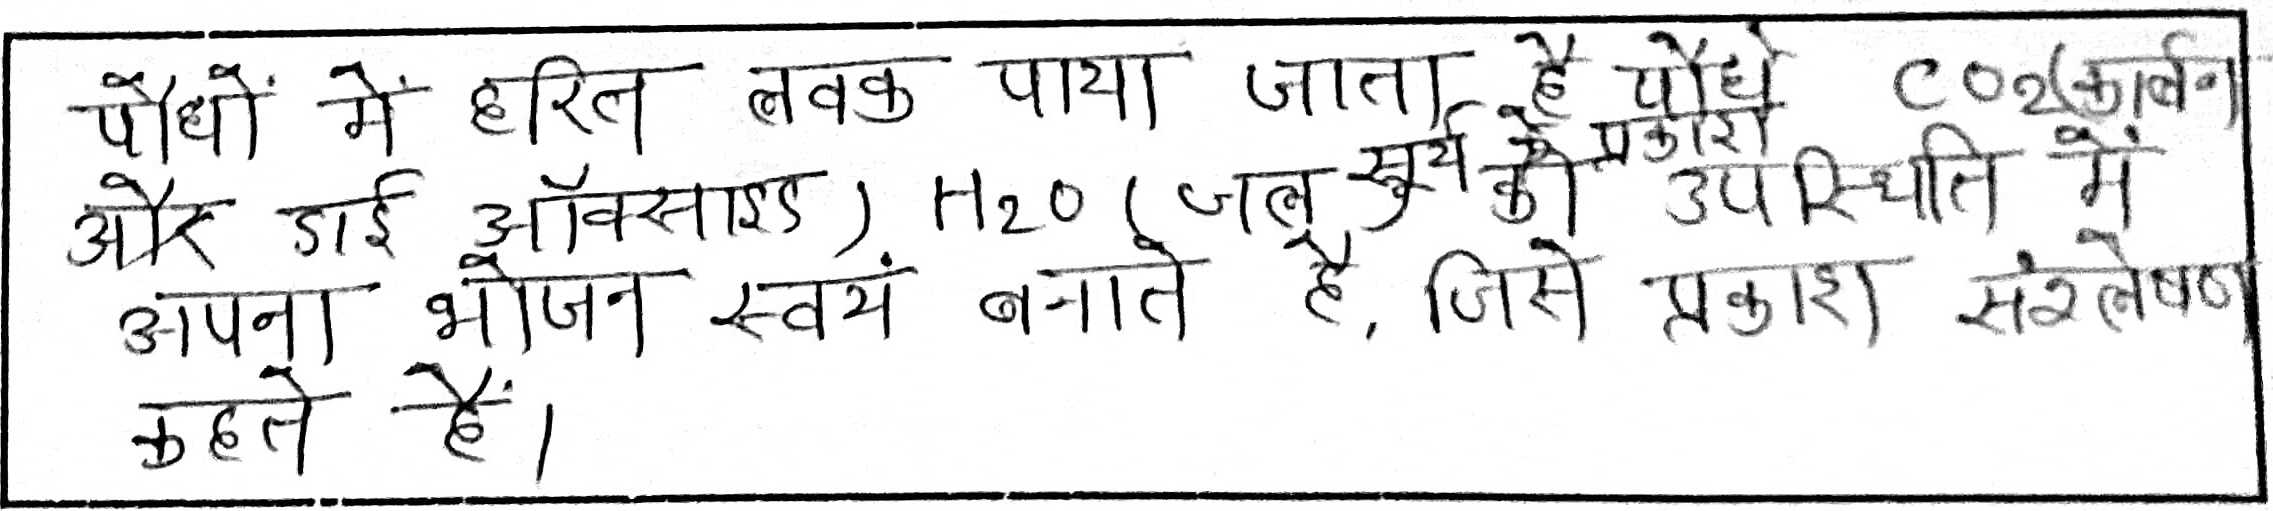 पौधों में हरित लवक पाया जाता है पौधे CO2(कार्बन
और डाई ऑक्साइड) H2O (जल सूर्य के प्रकाश की उपस्थिति में
अपना भोजन स्वयं बनाते है, जिसे प्रकाश संश्लेषण
कहते हैं।